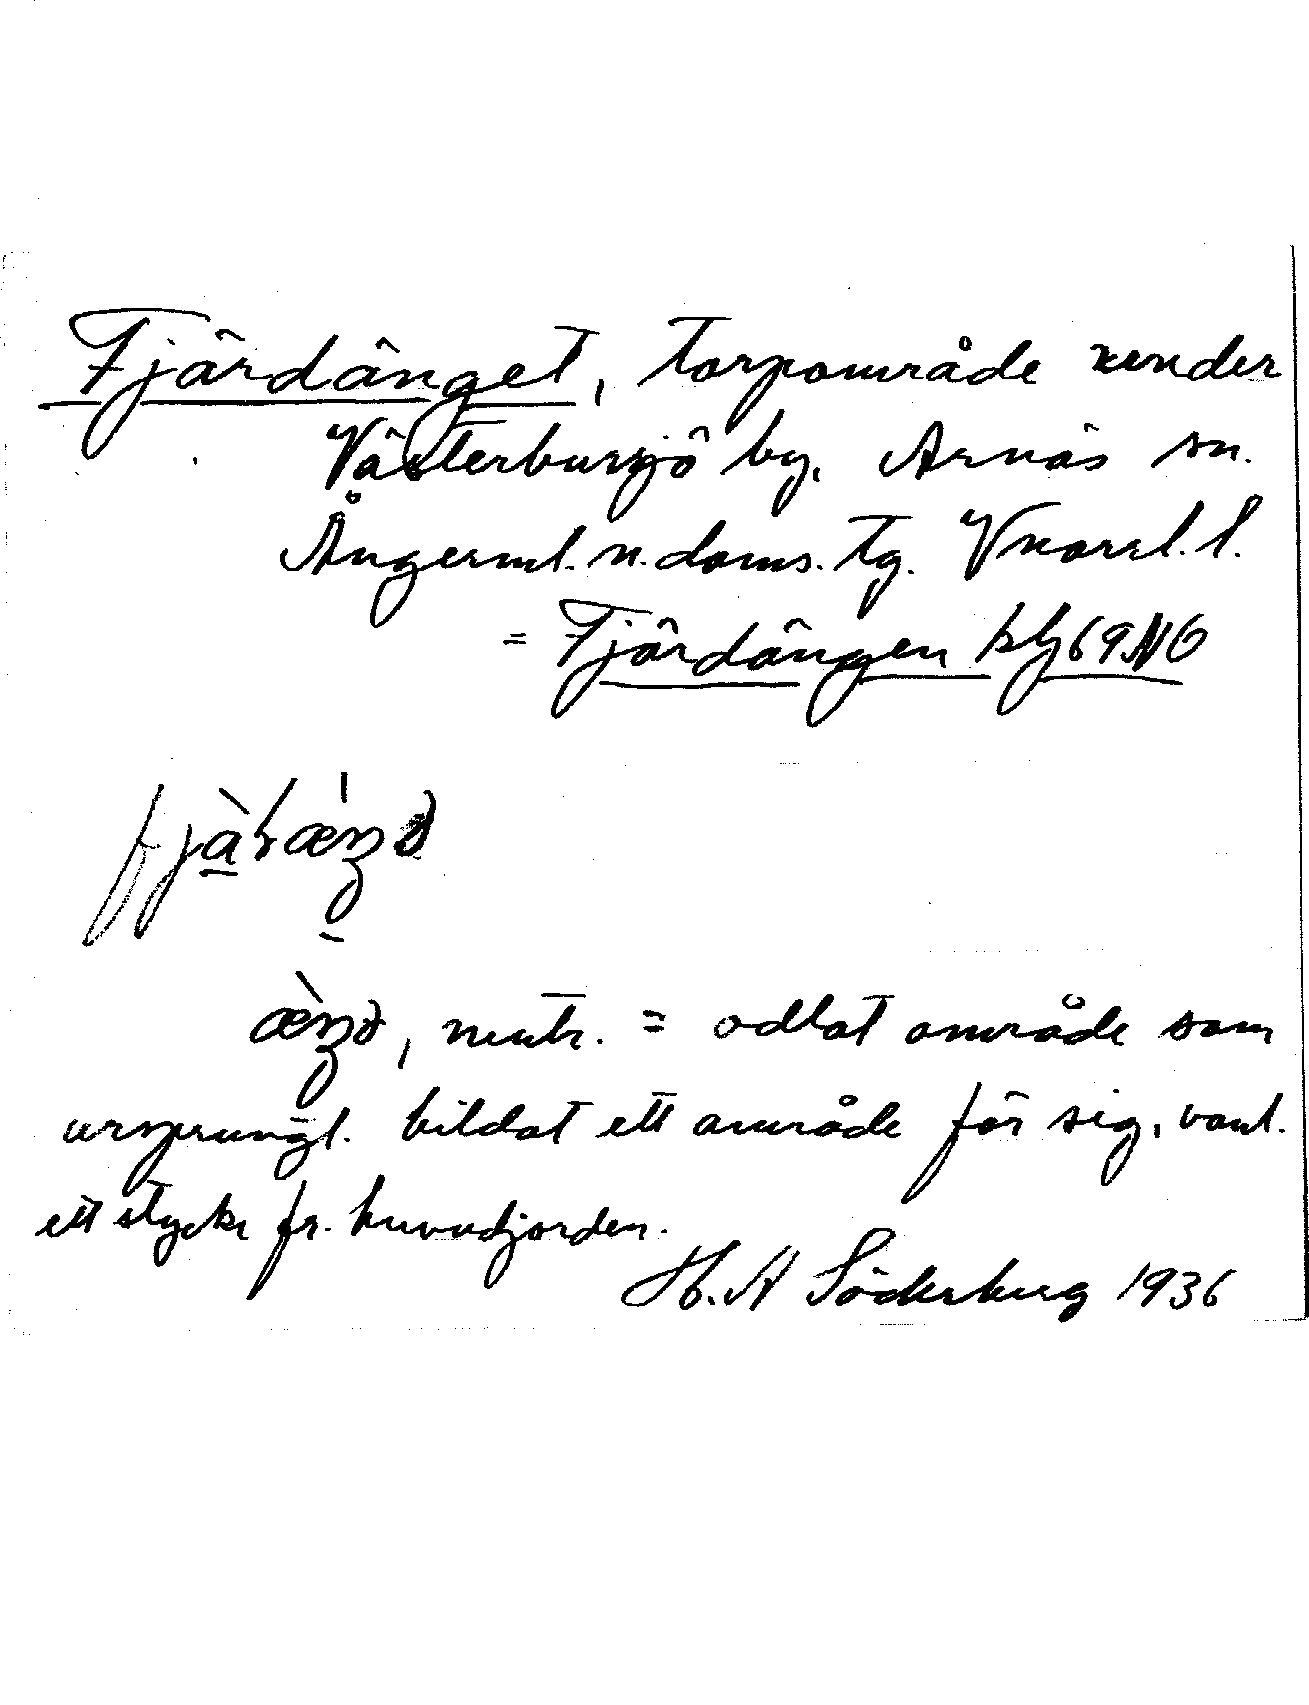 Fjärdänget, torpområde under
Västerbursjö by, Arnäs sn.
Ångerml. n. doms. tg. Vnorrl. l.
= Fjärdängen blg 69 NO
æŋə, neutr. = odlat område som
ursprungl. bildat ett område för sig, vanl.
ett stycke fr. huvudjorden.
H. A Söderberg 1936